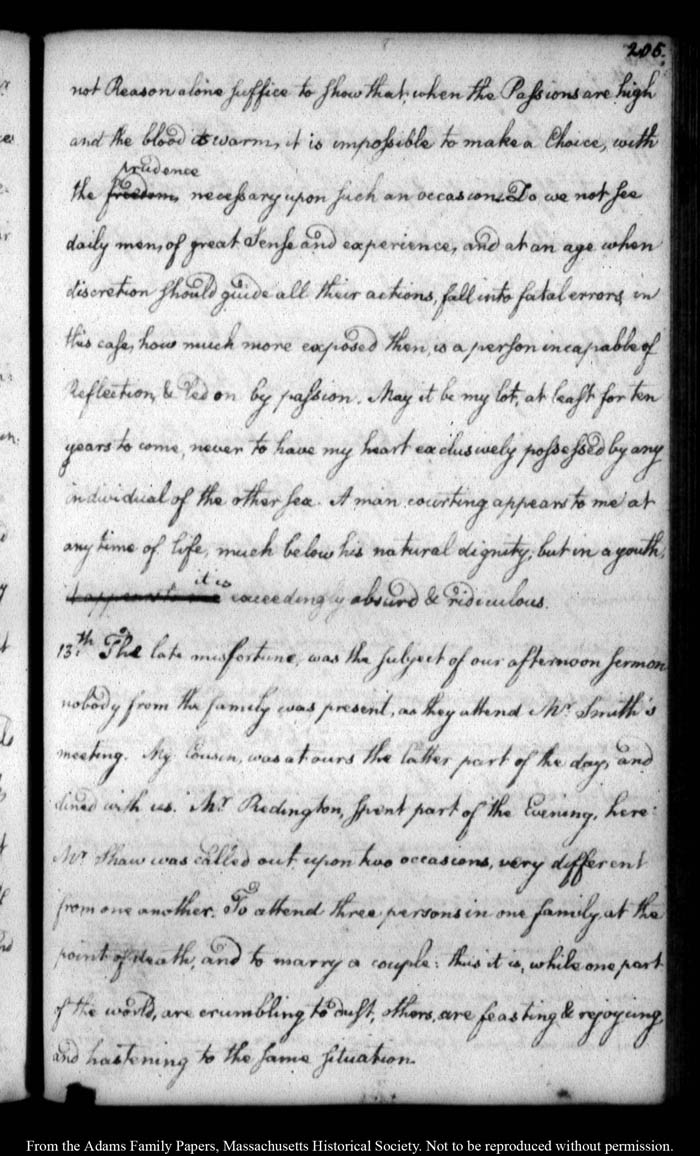 205.
not Reason alone suffice to show that, when the Passions are high
and the blood is warm, it is impossible to make a Choice, with
prudence
the freedom, necessary upon such an occasion. Do we not see
daily men, of great Sense and experience, and at an age when
discretion should guide all their actions, fall into fatal errors, in
this case, how much more exposed then, is a person incapable of
Reflection, & led on by passion. May it be my lot, at least for ten
years to come, never to have my heart exclusively possessed by any
individual of the other sex. A man courting appears to me at
any time of life, much below his natural dignity, but in a youth,
it is
it appears to me exceedingly absurd & ridiculous.
13th. The late misfortune, was the subject of our afternoon sermon
nobody from the family was present, as they attend Mr. Smith's
meeting. My Cousin, was at ours the latter part of the day, and
dined with us. Mr. Redington, spent part of the Evening, here:
Mr. Shaw was called out, upon two occasions, very different
from one another. To attend three persons in one family, at the
point of death, and to marry a couple: thus it is, while one part
of the world, are crumbling to dust, others, are feasting & rejoycing,
and hastening to the same situation.
From the Adams Family Papers, Massachusetts Historical Society. Not to be reproduced without permission.